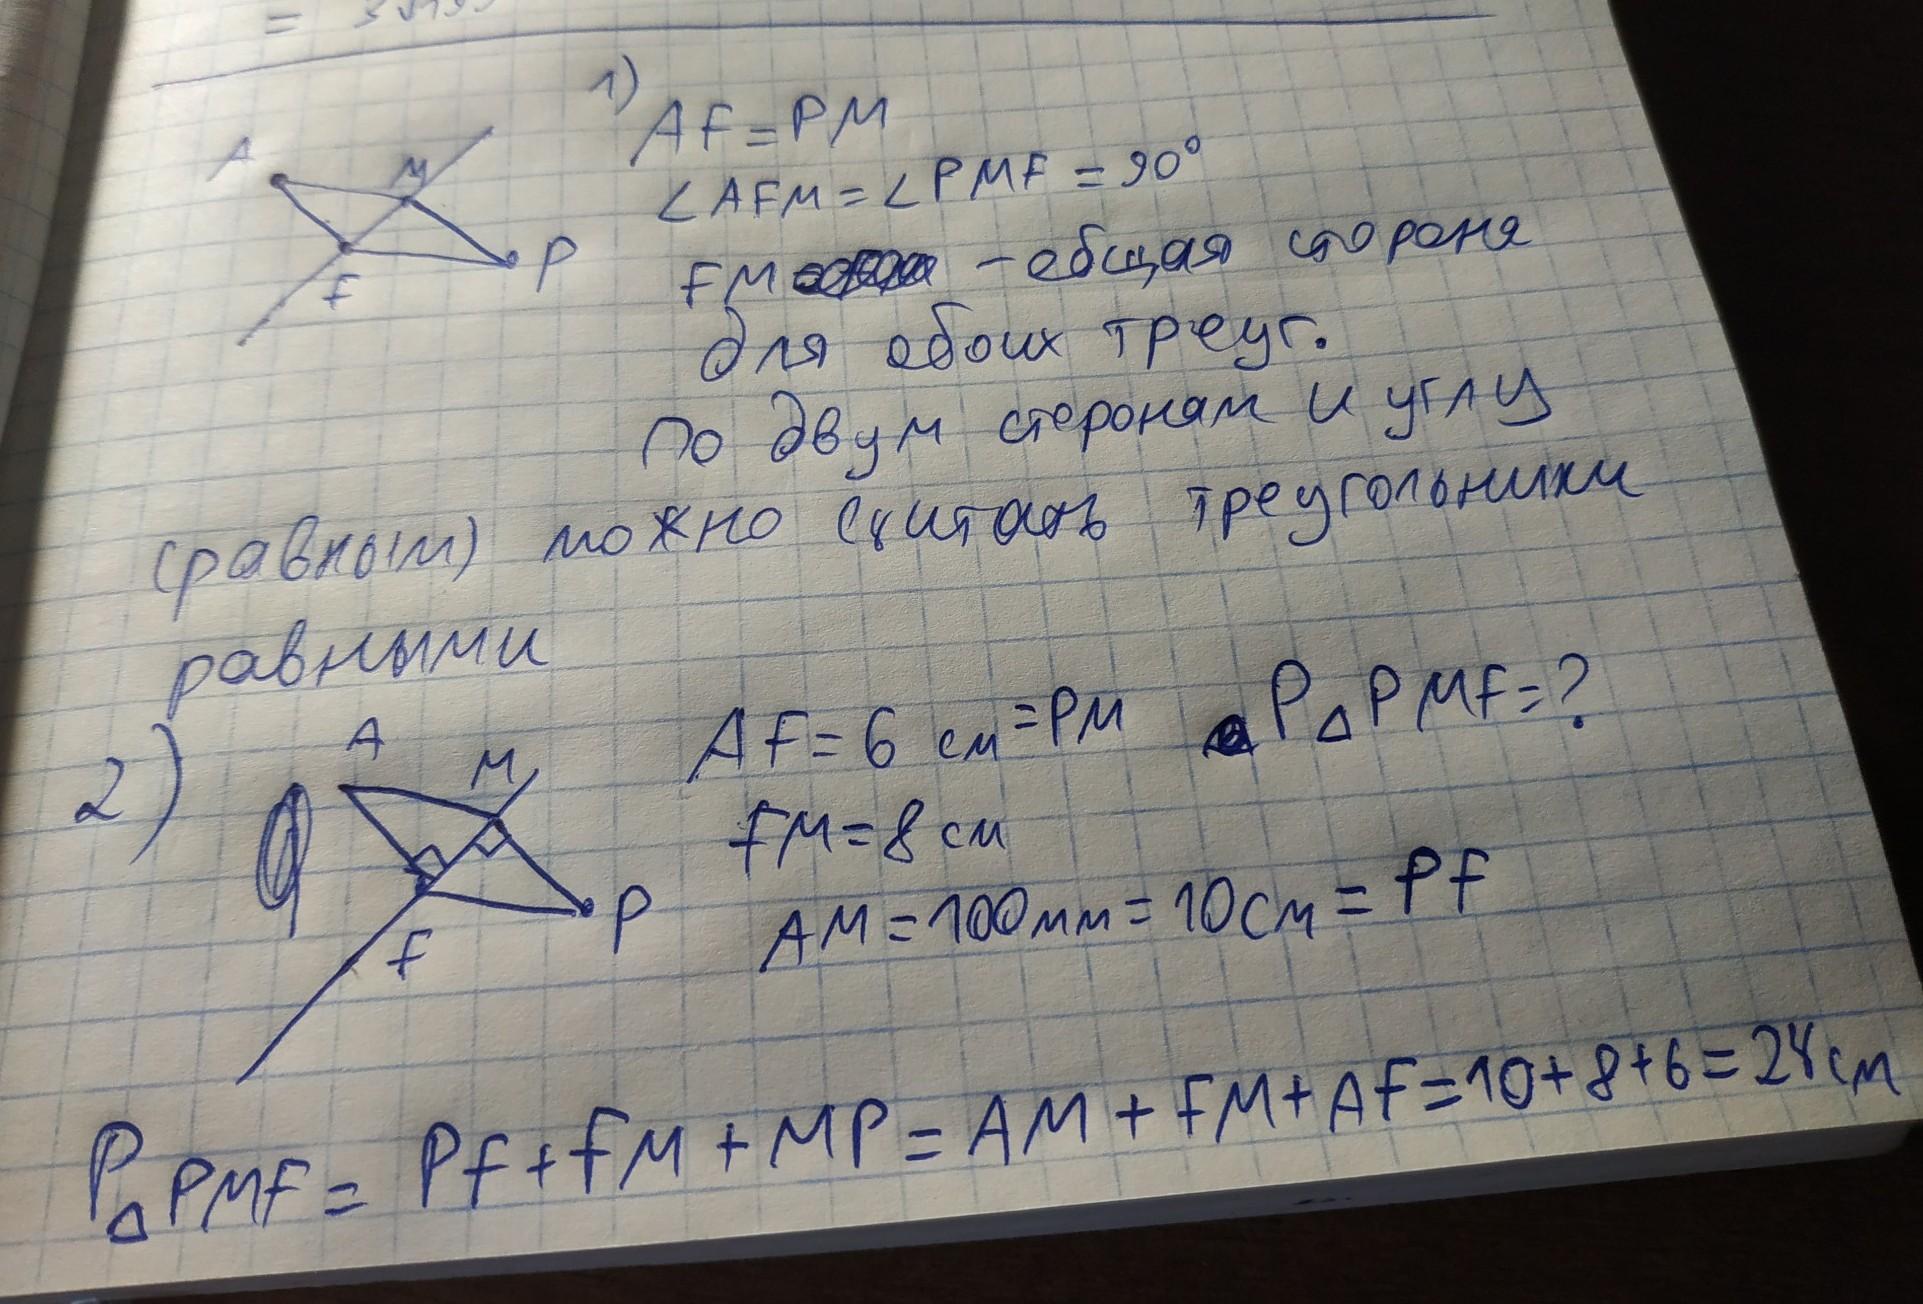 1)
AF = PM
∠AFM = ∠PMF = 90°
A
M
F
P
FM - общая стороня
для обоих треуг.
по двум сторонам и углу
(равным) можно считать треугольники
равными
2)
A
M
F
P
AF = 6 см = PM P△PMF = ?
FM = 8 см
AM = 100мм = 10см = PF
P△PMF = PF + FM + MP = AM + FM + AF = 10 + 8 + 6 = 24 см